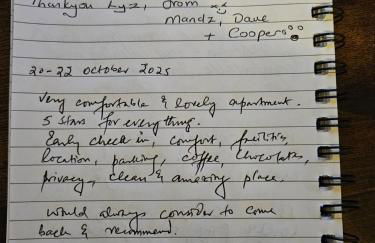 Thankyou Lyz, from
Mandz, Dave
+ Cooper
20-22 October 2025
Very comfortable & lovely apartment.
5 stars for everything.
Early check in, comfort, facilities,
location, parking, coffee, chocolates,
privacy, clean & amazing place.
Would always consider to come
back & recommend.